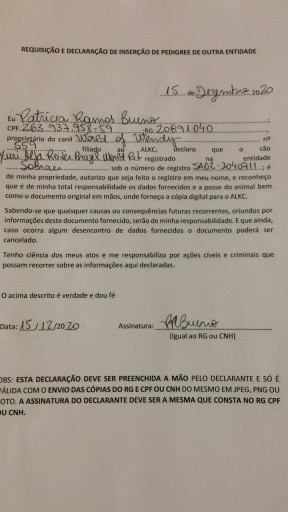 REQUISIÇÃO E DECLARAÇÃO DE INSERÇÃO DE PEDIGREE DE OUTRA ENTIDADE
15 de Dezembro 2020
Eu Patricia Ramos Bueno
CPF 263.937.958-59 RG 20891040
proprietário do canil World of Wendy nº
559 filiado ao ALKC, declaro que o cão
Yuri Deja Reiter Brazil World Pet registrado na entidade
Sobraci sob o número de registro SA02-2040911, é
de minha propriedade, autorizo que seja feito o registro em meu nome, e reconheço
que é de minha total responsabilidade os dados fornecidos e a posse do animal bem
como o documento original em mãos, onde forneço a cópia digital para o ALKC.
Sabendo-se que quaisquer causas ou consequências futuras recorrentes, oriundos por
informações deste documento fornecido, serão de minha responsabilidade. E que ainda,
caso ocorra algum desencontro de dados fornecidos o documento poderá ser
cancelado.
Tenho ciência dos meus atos e me responsabilizo por ações cíveis e criminais que
possam recorrer sobre as informações aqui declaradas.
O acima descrito é verdade e dou fé
Data: 15/12/2020 Assinatura: PRBueno
(Igual ao RG ou CNH)
OBS: ESTA DECLARAÇÃO DEVE SER PREENCHIDA A MÃO PELO DECLARANTE E SÓ É
VÁLIDA COM O ENVIO DAS CÓPIAS DO RG E CPF OU CNH DO MESMO EM JPEG, PNG OU
FOTO. A ASSINATURA DO DECLARANTE DEVE SER A MESMA QUE CONSTA NO RG CPF
OU CNH.